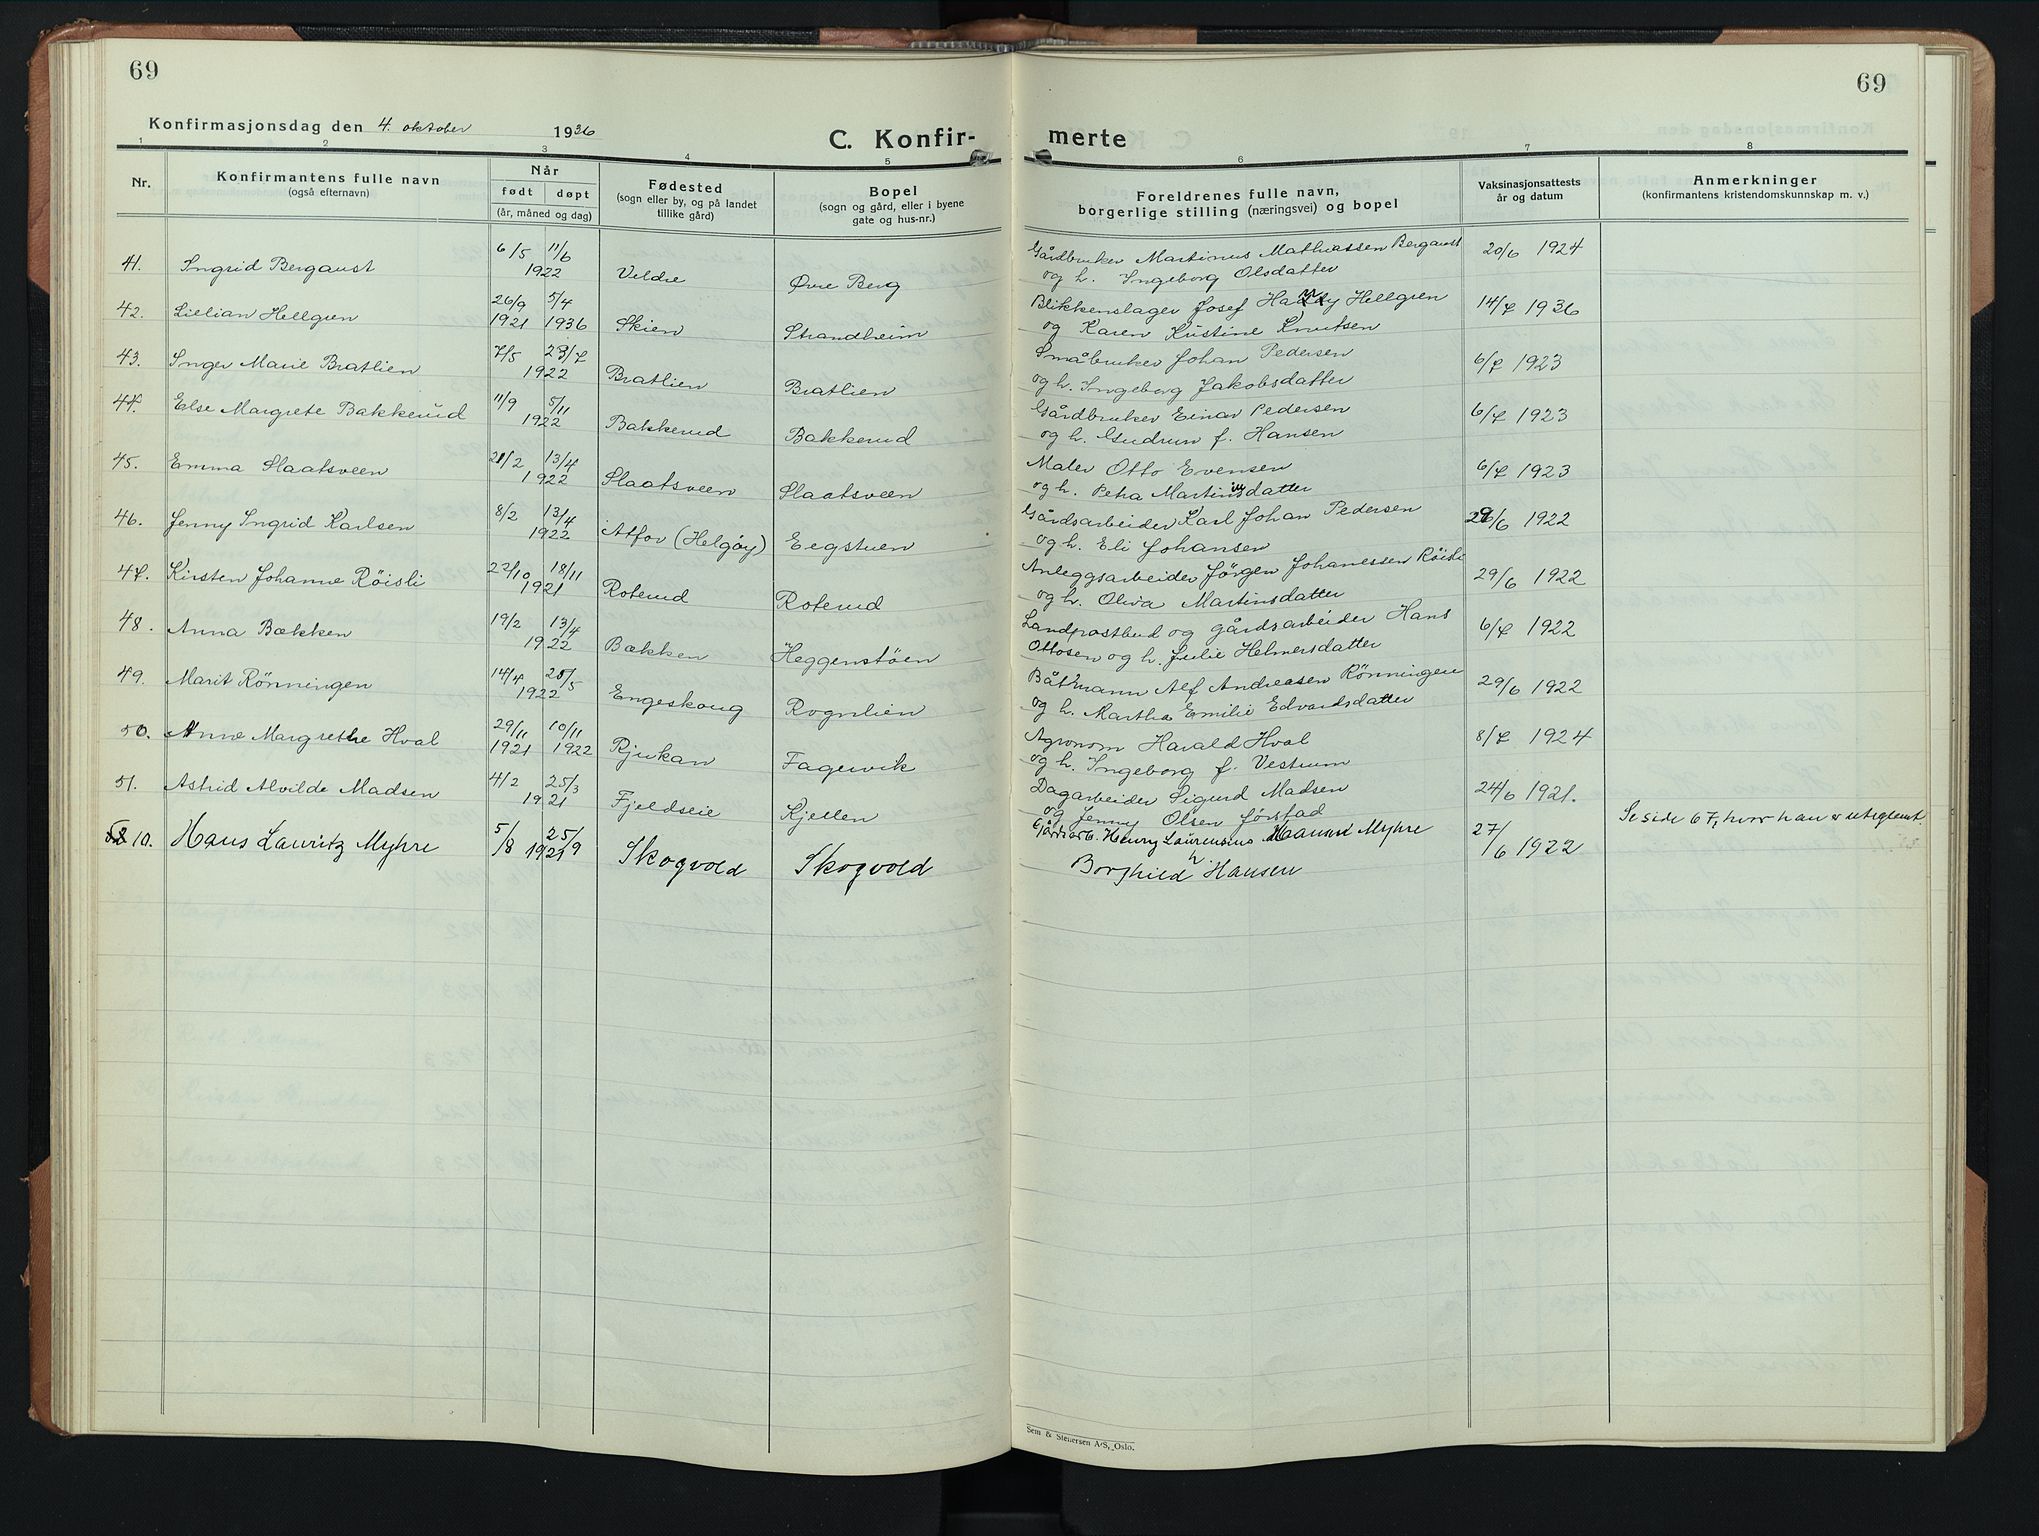 69
69
Konfirmasjonsdag den 4. oktober 1936
C. Konfir- merte
1 2 3 4 5 6 7 8
Nr.
Konfirmantens fulle navn
(også efternavn)
Når
født døpt
(år, måned og dag)
Fødested
(sogn eller by, og på landet
tillike gård)
Bopel
(sogn og gård, eller i byene
gate og hus-nr.)
Foreldrenes fulle navn,
borgerlige stilling (næringsvei) og bopel
Vaksinasjonsattests
år og datum
Anmerkninger
(konfirmantens kristendomskunnskap m. v.)
41. Ingrid Bergaust 6/5 11/6 1922 Veldre Øvre Berg Gårdbruker Martinus Mathiassen Bergaust 20/6 1924
og h. Ingeborg Olsdatter
42. Lielian Hellgren 26/9 1921 5/4 1936 Skien Strandheim Blikkenslager Josef Hellgren 14/7 1936
og Karen Kristine Knutsen
43. Inger Marie Bratlien 7/5 23/7 1922 Bratlien Bratlien Småbruker Johan Pedersen 6/7 1923
og h. Ingeborg Jakobsdatter
44. Else Margrete Bakkerud 11/9 5/11 1922 Bakkerud Bakkerud Gårdbruker Einar Pedersen 6/7 1923
og h. Gudrun f. Hansen
45. Emma Slaatsveen 21/2 13/4 1922 Slaatsveen Slaatsveen Maler Otto Evensen 6/7 1923
og h. Petra Martinusdatter
46. Jenny Ingrid Karlsen 8/2 13/4 1922 Atfor (Helgøy) Eegstuen Gårdsarbeider Karl Johan Pedersen 29/6 1922
og h. Eli Johansen
47. Kirsten Johanne Röisli 22/10 18/11 1921 Roterud Roterud Anleggsarbeider Jørgen Johanessen Röisli 29/6 1922
og h. Oliva Martinsdatter
48. Anna Bækken 19/2 13/4 1922 Bækken Heggenstøen Landpostbud og gårdsarbeider Hans 6/7 1922
Ottosen og h. Julie Helmersdatter
49. Marit Rönningen 14/4 25/5 1922 Engeskoug Rognlien Båtmann Alf Andreasen Rönningen 29/6 1922
og h. Martha Emilie Edvardsdatter
50. Anne Margrethe Hval 29/11 1921 10/11 1922 Rjukan Fagervik Agronom Harald Hval 8/7 1924
og h. Ingeborg f. Vestrum
51. Astrid Alvilde Madsen 4/2 25/3 1921 Fjeldseie Kjellen Dagarbeider Sigurd Madsen 24/6 1921.
og Jenny Olsen Jørstad
10. Hans Lauritz Myhre 5/8 25/9 1921 Skogvold Skogvold Gårdsarb. Henry Laurensius Hansen Myhre 27/6 1922 Se side 67, hvor han er uteglemt.
h
Borghild Hansen
Sem & Stenersen A/S, Oslo.